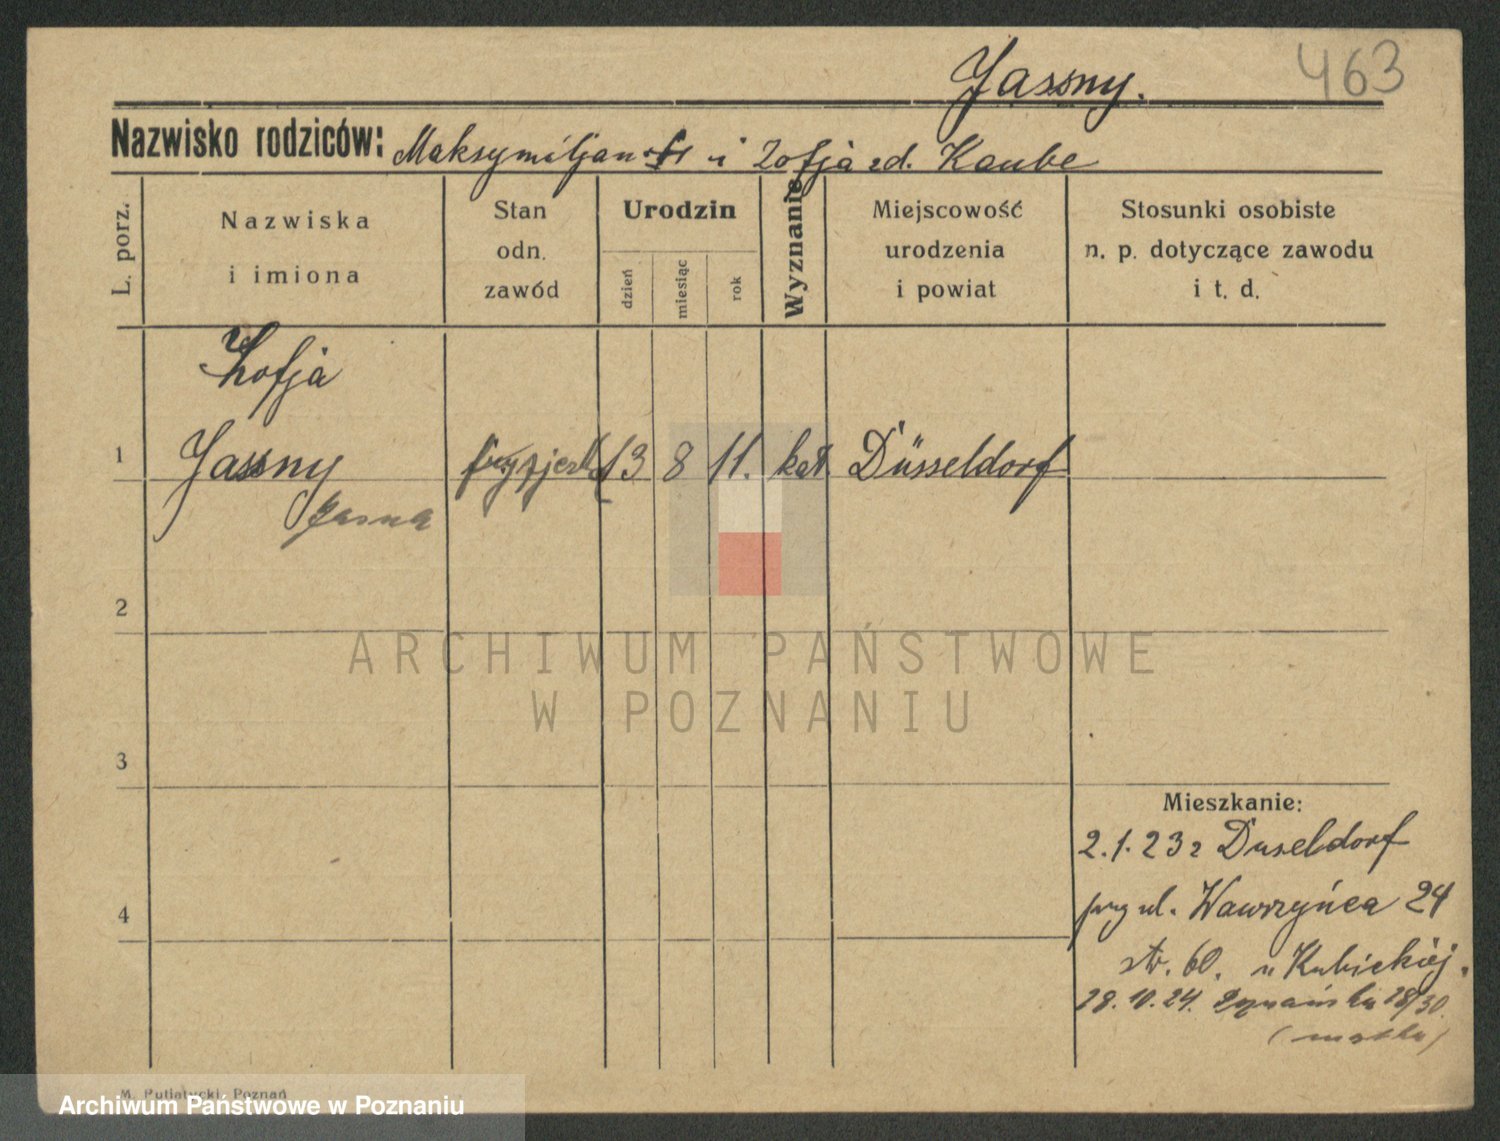 Jassny.
463
Nazwisko rodziców: Maksymiljan i Zofja zd. Kaube
L. porz.
Nazwiska
i imiona
Stan
odn.
zawód
Urodzin
dzień
miesiąc
rok
Wyznanie
Miejscowość
urodzenia
i powiat
Stosunki osobiste
n. p. dotyczące zawodu
i t. d.
Zofja
1 Jassny 13 8 11. kat. Düsseldorf
Jasna
2
3
4
Mieszkanie:
2.1.23 z Duseldorf
przy ul. Wawrzyńca 24
str. 60. u Kubickiej.
28.10.24. 28/30.
(matka)
ARCHIWUM PAŃSTWOWE
W POZNANIU
M. Putiatycki, Poznań
Archiwum Państwowe w Poznaniu